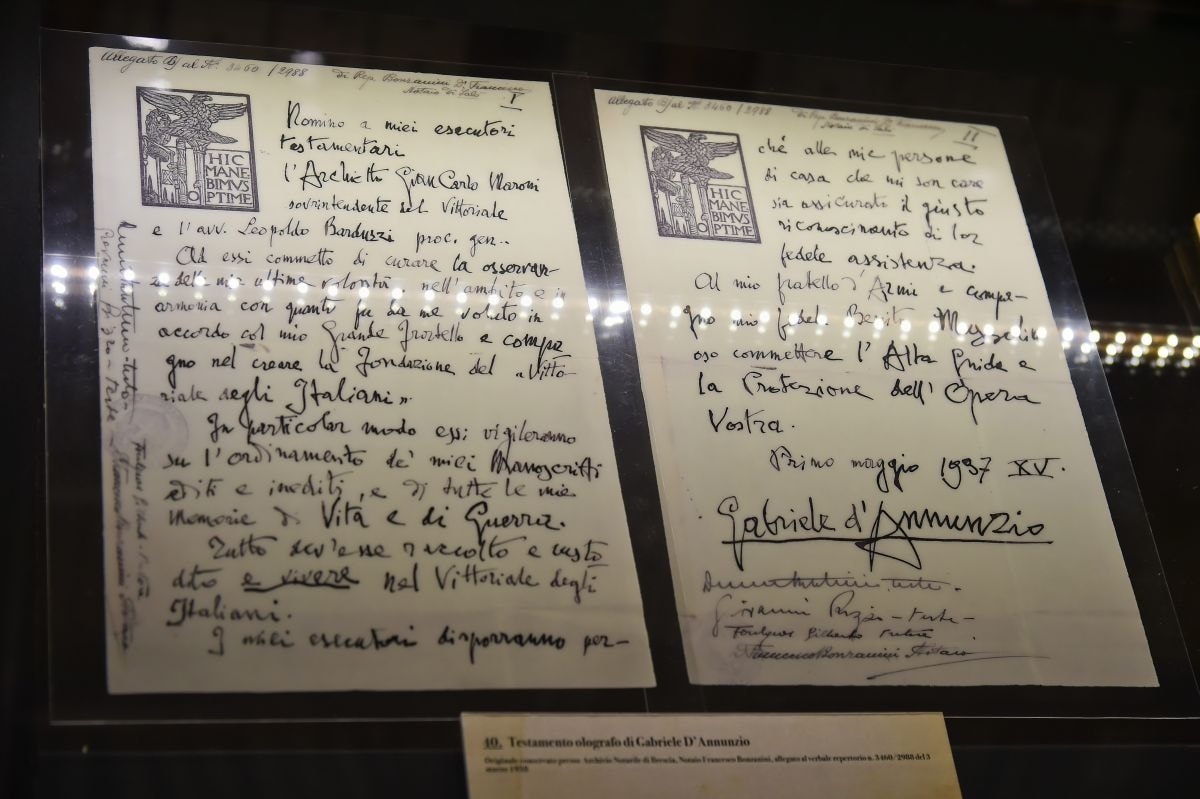 Allegato B/ al N. 3460 / 2988
di Rep. Bonzanini Dr Francesco
Notaio di Salò
I
HIC
MANE
BIMVS
OPTIME
Nomino a miei esecutori
testamentari
l'Architetto GianCarlo Maroni
sovrintendente del Vittoriale
e l'avv. Leopoldo Barduzzi proc. gen..
Ad essi commetto di curare la osservan-
za delle mie ultime volontà, nell'ambito e in
armonia con quanto fu da me voluto in
accordo col mio Grande Fratello e compa
gno nel creare la Fondazione del «Vitto-
riale degli Italiani».
In particolar modo essi vigileranno
su l'ordinamento de' miei Manoscritti
editi e inediti, e di tutte le mie
Memorie di Vita e di Guerra.
Tutto dev'esse raccolto e custo
dito e vivere nel Vittoriale degli
Italiani.
I miei esecutori disporranno per-
Allegato B/ al N. 3460 / 2988
di Rep. Bonzanini Dr Francesco
Notaio di Salò
II
HIC
MANE
BIMVS
OPTIME
ché alle mie persone
di casa che mi son care
sia assicurato il giusto
riconoscimento di lor
fedele assistenza.
Al mio fratello d'Armi e compa-
gno mio fedel. Benito Mussolini
oso commettere l'Alta Guida e
la Protezione dell'Opera
Vostra.
Primo maggio 1937 XV.
Gabriele d'Annunzio
teste.
Giovanni Pizio - teste -
Francesco Bonzanini Notaio
40. Testamento olografo di Gabriele D'Annunzio
Originale conservato presso Archivio Notarile di Brescia, Notaio Francesco Bonzanini, allegato al verbale repertorio n. 3460/2988 del 3
marzo 1938